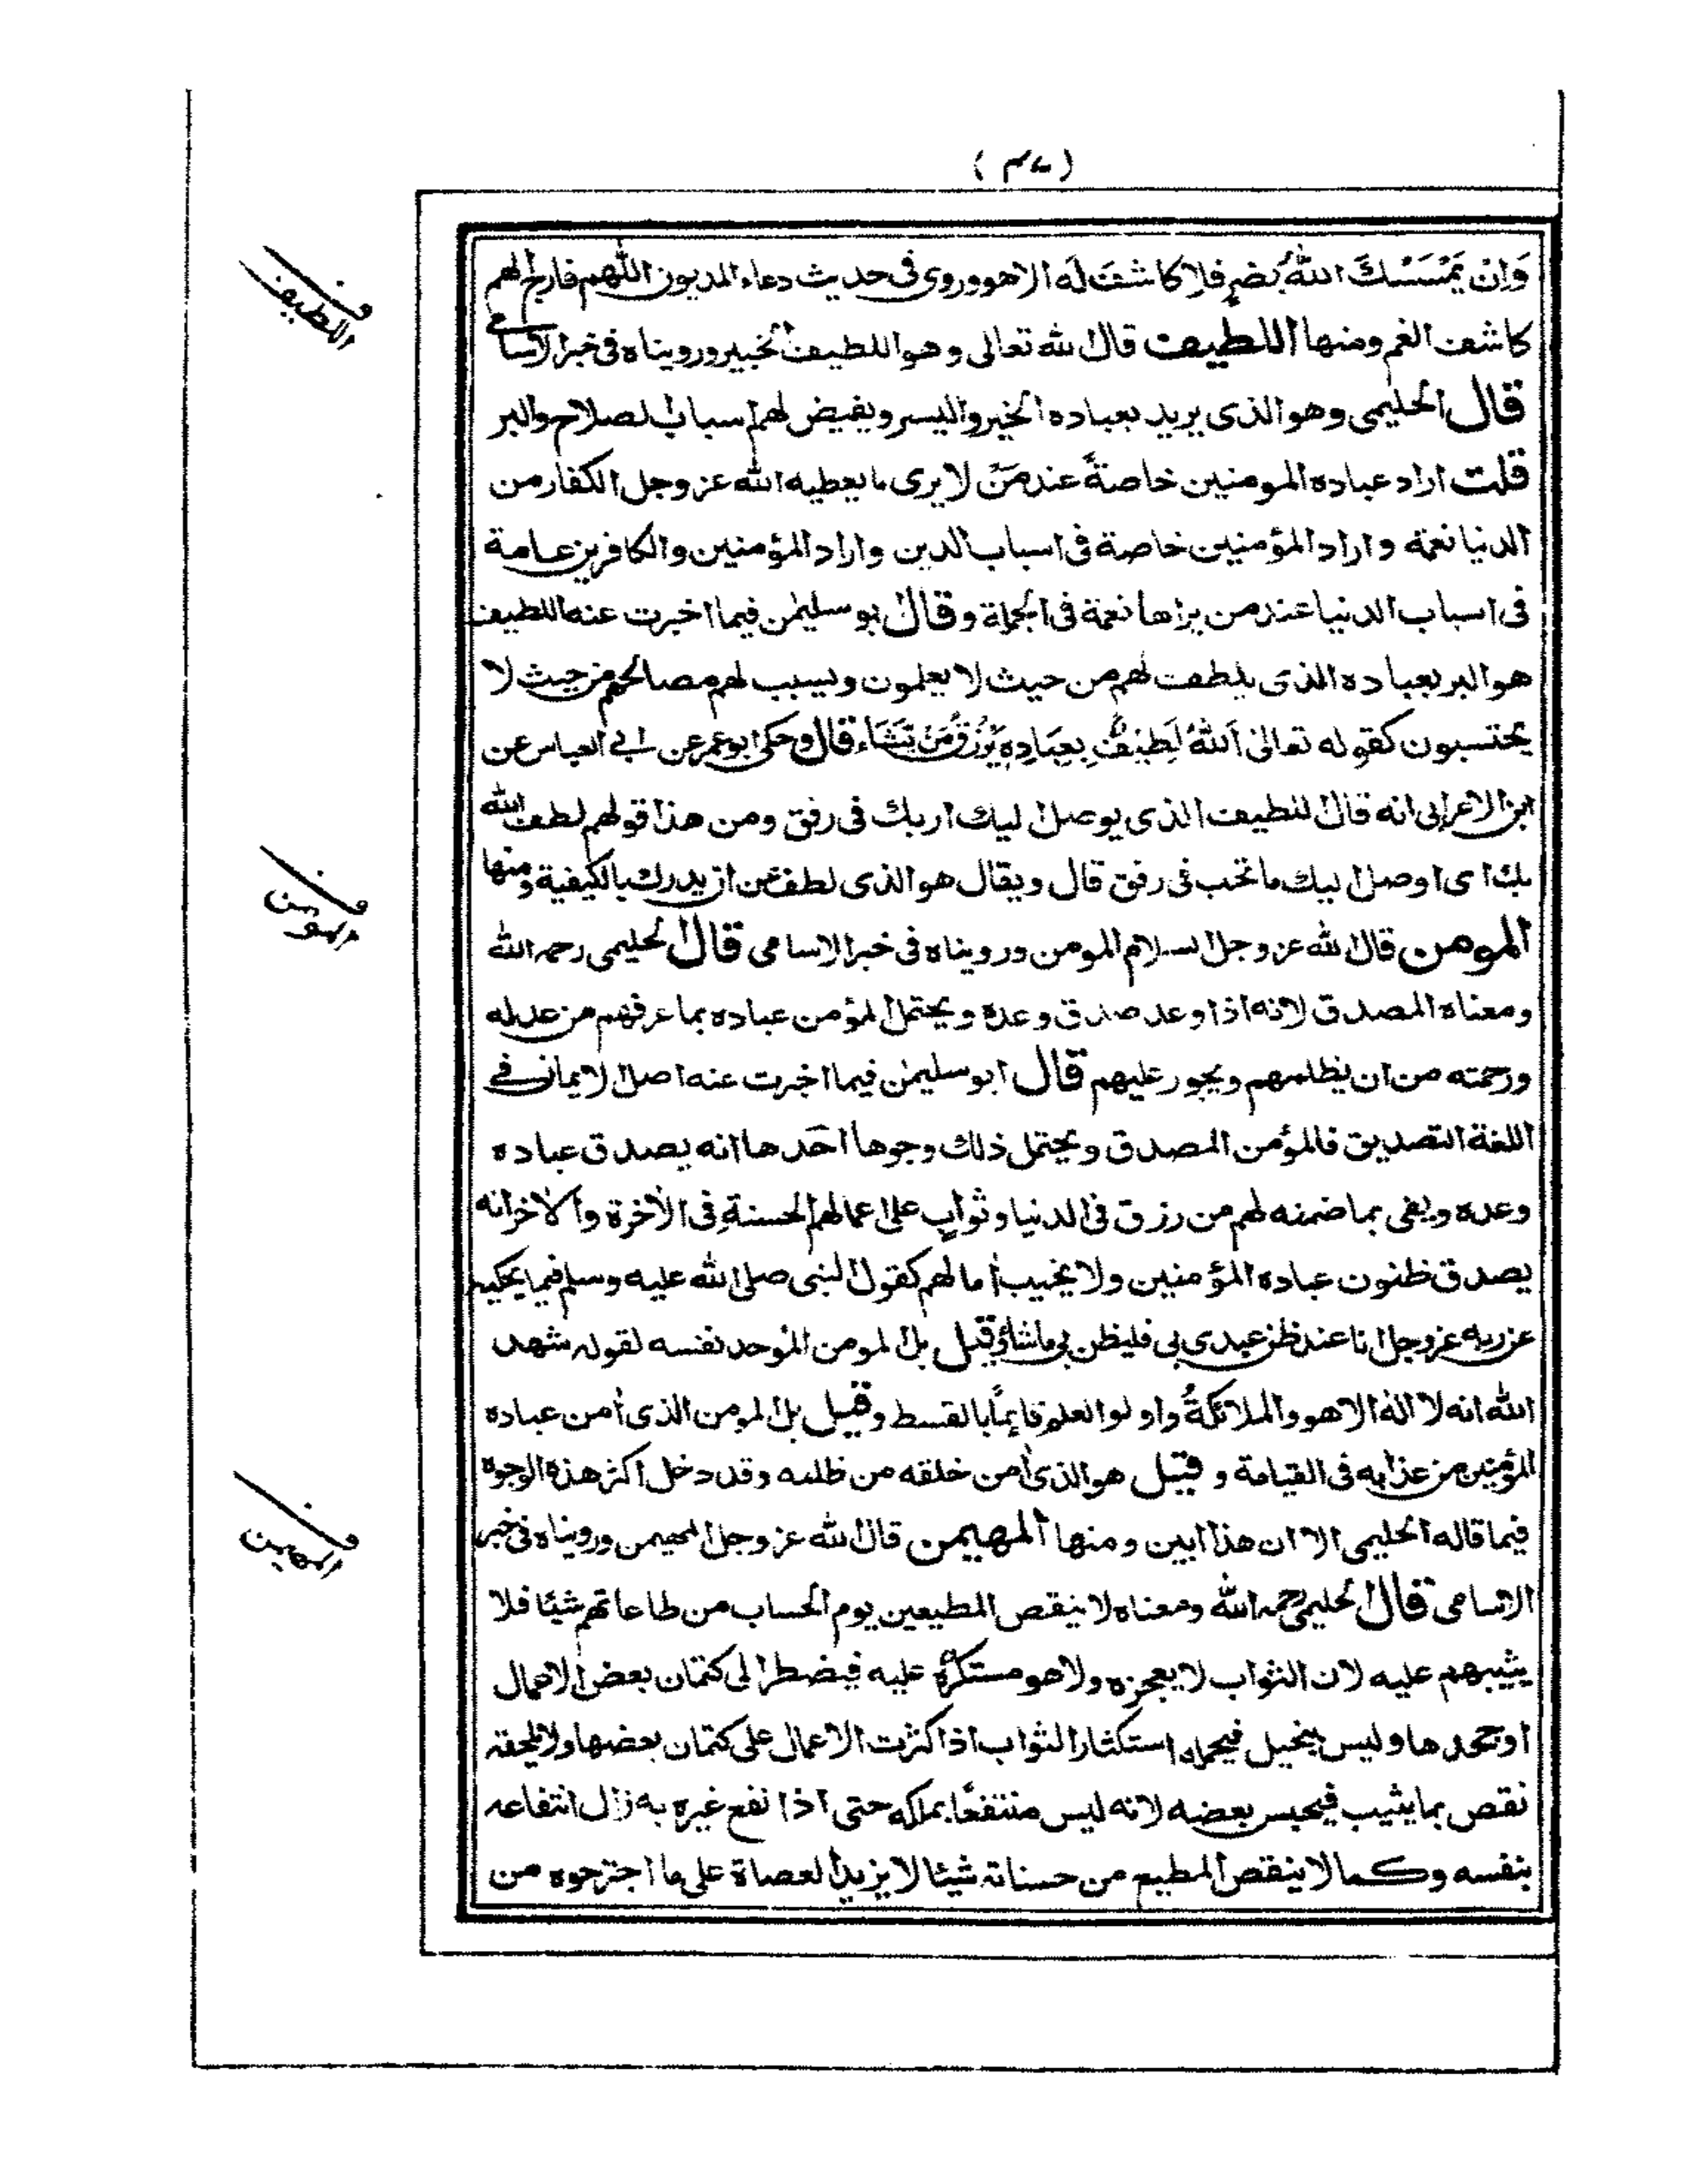 (٤٧)
وَاِنْ يَمْسَسْكَ اللّٰهُ بِضُرٍ فلا كاشفَ لَه الا هو وروى فى حديث دعاء المديون اللّٰهم فارج الهم
كاشف الغم ومنها اللطيف قال الله تعالى وهو اللطيف الخبير ورويناه فى خبر الاسامى
قال الحليمى وهو الذى يريد بعباده الخير واليسر ويفيض لهم اسباب الصلاح والبر
قلت اراد عباده المومنين خاصةً عند مَنْ لا يرى ما يعطيه الله عز وجل الكفار من
الدنيا نعمة واراد المؤمنين خاصة فى اسباب الدين واراد المؤمنين والكافرين عامة
فى اسباب الدنيا عند من يراها نعمة فى الجملة وقال ابو سليمٰن فيما اخبرت عنه اللطيف
هو البر بعباده الذى يلطف لهم من حيث لا يعلمون ويسبب لهم مصالحهم من حيث لا
يحتسبون كقوله تعالىٰ اَللّٰهُ لَطِيْفٌ بِعِبَادِهٖ يَرْزُقُ مَنْ يَّشَاء قال وحكى ابو عمر عن ابى العباس عن
ابن الاعرابى انه قال اللطيف الذى يوصل اليك اربك فى رفق ومن هذا قولهم لطف الله
بك اى اوصل اليك ما تحب فى رفق قال ويقال هو الذى لطف عن ان يدرك بالكيفية ومنها
المومن قال الله عز وجل السلام المومن ورويناه فى خبر الاسامى قال الحليمى رحمه الله
ومعناه المصدق لانه اذا وعد صدق وعده ويحتمل المؤمن عباده بما عرفهم من عدله
ورحمته من ان يظلمهم ويجور عليهم قال ابو سليمٰن فيما اخبرت عنه اصل الايمان فے
اللغة التصديق فالمؤمن المصدق ويحتمل ذلك وجوها احدها انه يصدق عباده
وعده ويفى بما ضمنه لهم من رزق فى الدنيا وثوابٍ على اعمالهم الحسنةِ فى الاٰخرة والاٰخر انه
يصدق ظنون عباده المؤمنين ولا يخيب اٰمالهم كقول النبى صلى الله عليه وسلم فيما يحكيه
عن ربه عز وجل انا عند ظن عبدى بى فليظن بى ماشاء وقيل بل المومن الموحد نفسه لقوله شهد
الله انه لا الٰه الا هو والملائكةُ واولوا العلم قائمًا بالقسط وقيل بل المومن الذى اٰمن عباده
المؤمنين من عذابه فى القيامة وقيل هو الذى اٰمن خلقه من ظلمه وقد دخل اكثر هذه الوجوه
فيما قاله الحليمى الا ان هذا ابين ومنها المهيمن قال الله عز وجل المهيمن ورويناه فى خبر
الاسامى قال الحليمى رحمه الله ومعناه لا ينقص المطيعين يوم الحساب من طاعاتهم شيئا فلا
يثيبهم عليه لان الثواب لا يعجزه ولا هو مستكرهٌ عليه فيضطر الى كتمان بعض الاعمال
او جحدها وليس ببخيل فيحمله استكثار الثواب اذا كثرت الاعمال على كتمان بعضها ولا يلحقه
نقص بما يثيب فيحبس بعضه لانه ليس منتفعًا بملكه حتى اذا نفع غيره به زال انتفاعه
بنفسه وكما لا ينقص المطيع من حسناته شيئا لا يزيد العصاة على ما اجترحوه من
ف
اللطيف
ف
المومن
ف
المهيمن